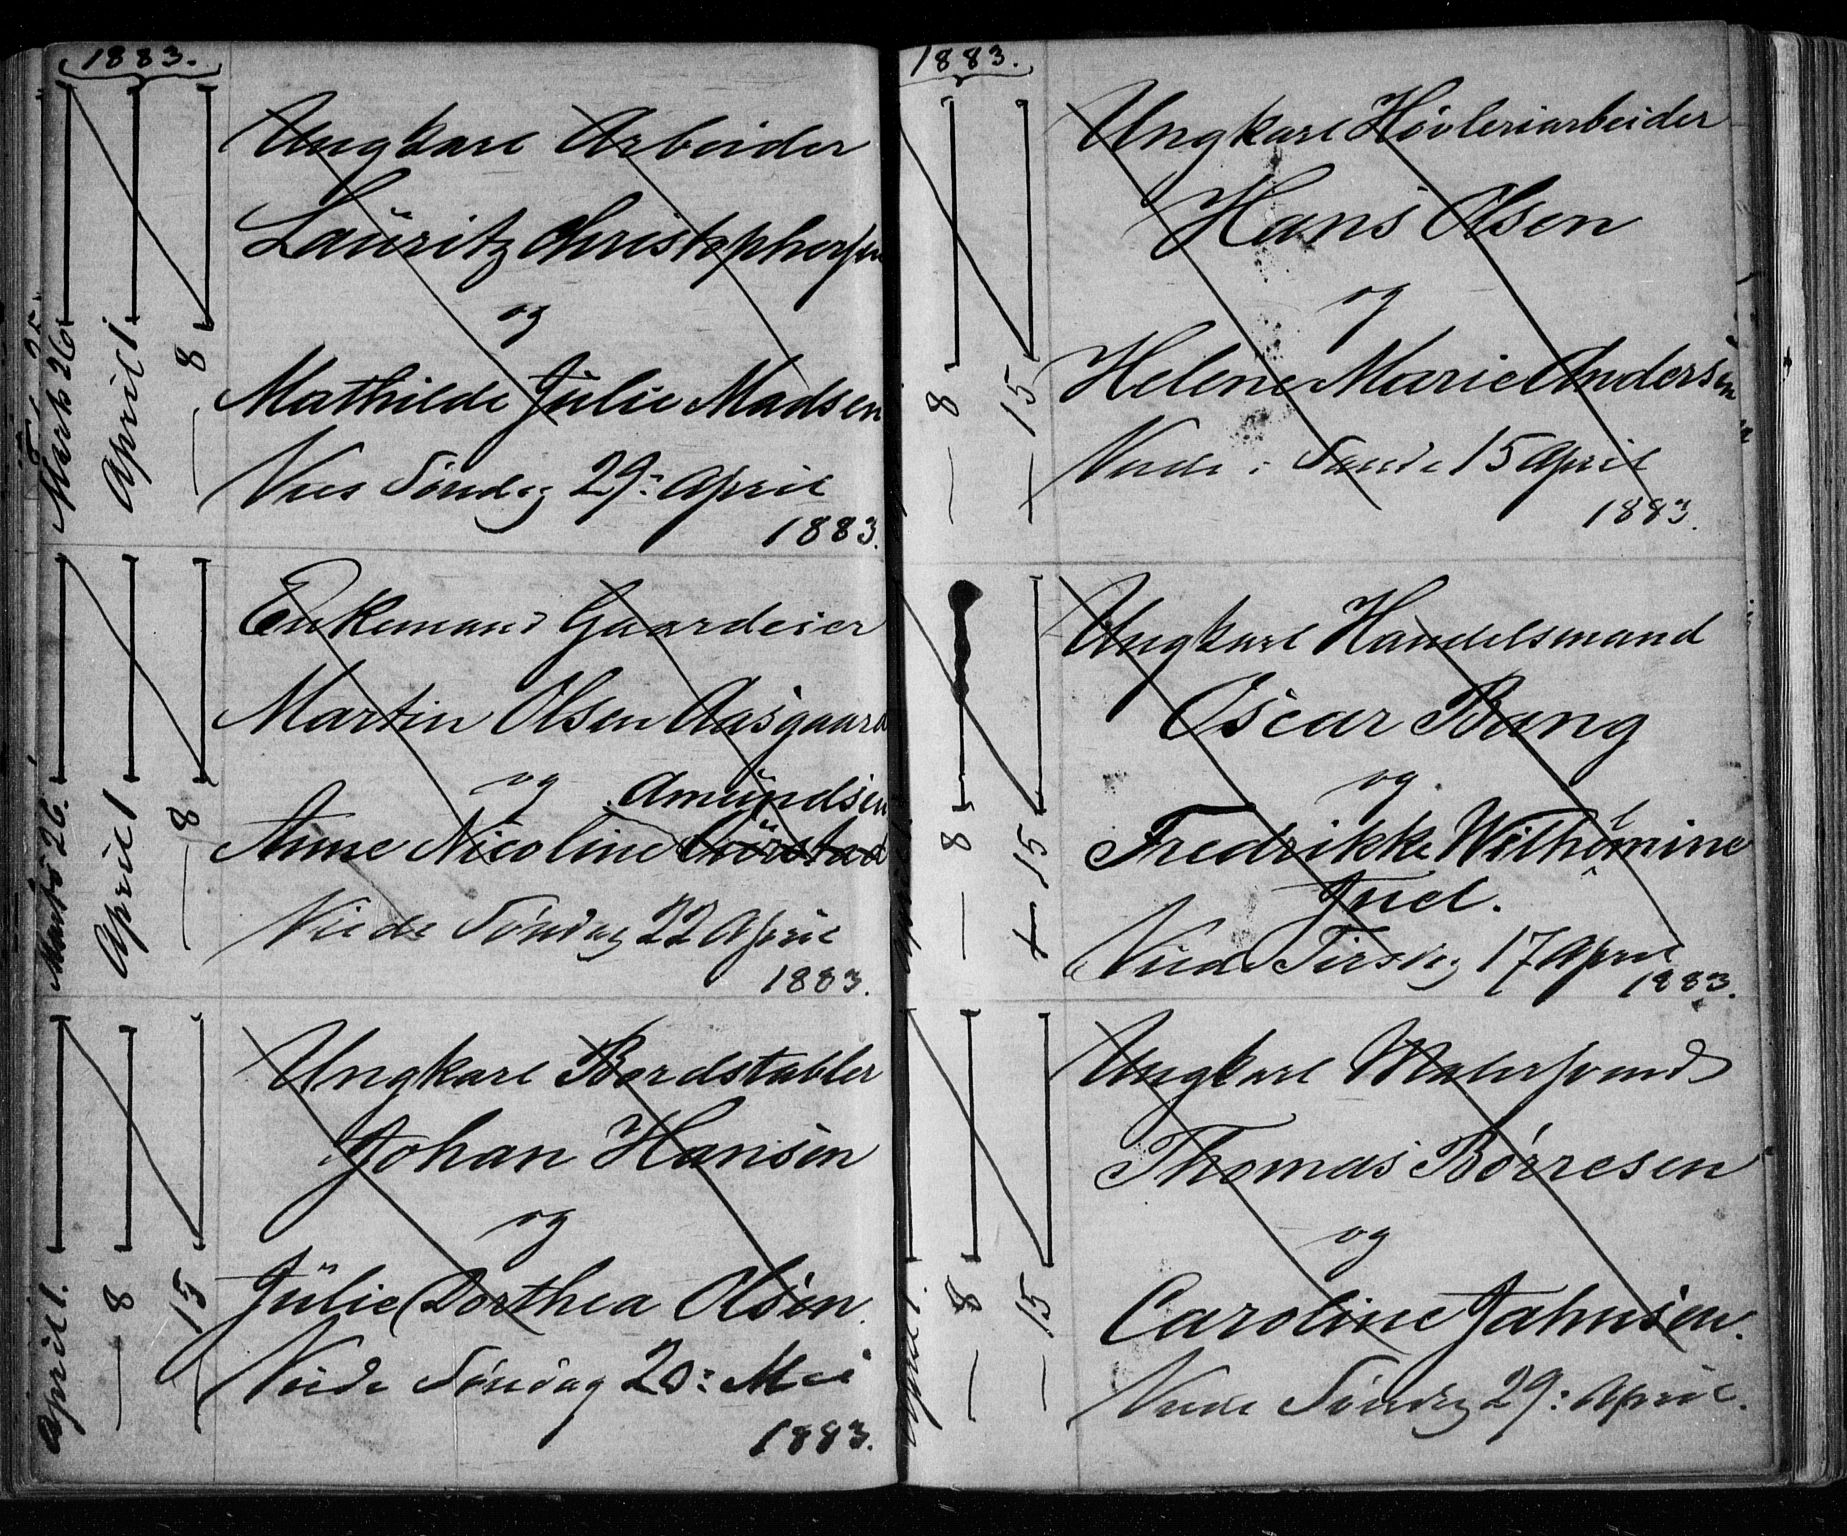 1883.
Marts 26.
April 1
— 8
Ungkarl Arbeider
Lauritz Christophersen
og
Mathilde Julie Madsen
Vies Søndag 29: April
1883.
Marts 26.
April 1
— 8
Enkemand Gaardeier
Martin Olsen Aasgaard
og
Amundsen
Anne Nicoline
Viede Søndag 22 April
1883.
April 1.
— 8
— 15
Ungkarl Bordstabler
Johan Hansen
og
Julie Dorthea Olsen.
Viede Søndag 20: Mai
1883.
1883.
— 8
— 15
Ungkarl Høvleriarbeider
Hans Olsen
og
Helene Marie Andersen
Viede i Sande 15 April
1883.
— 8
15
Ungkarl Handelsmand
Oscar Bang
og
Fredrikke Wilhelmine
Juel.
Viede Tirsdag 17 April
1883.
April 1.
— 8
— 15
Ungkarl Malersvend
Thomas Børresen
og
Caroline Jahnsen.
Viede Søndag 29: April.